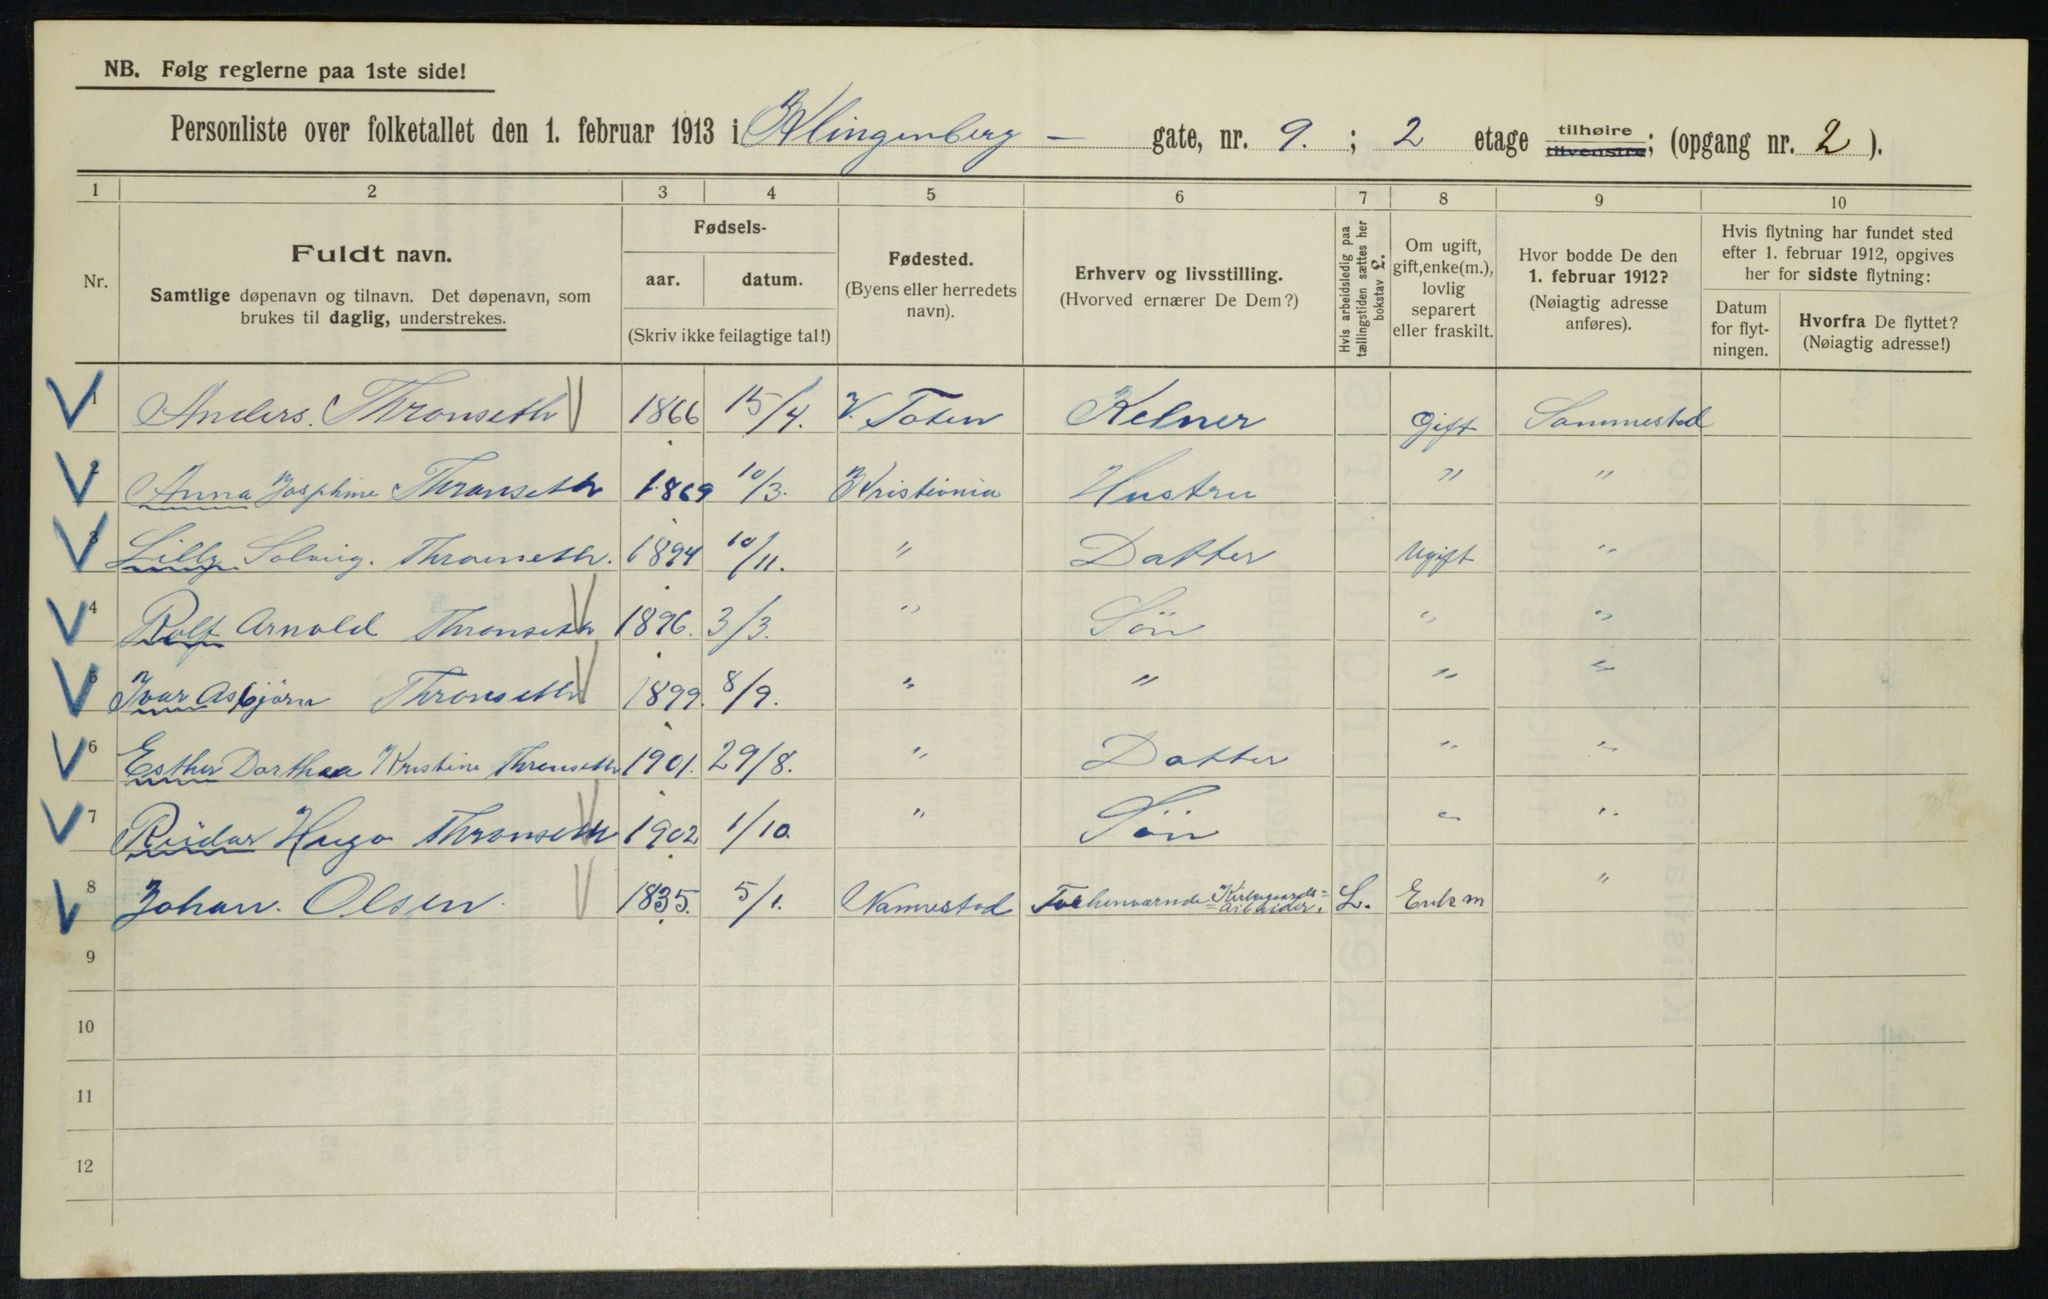 NB. Følg reglerne paa 1ste side!
Personliste over folketallet den 1. februar 1913 i Klingenberg — gate, nr. 9. ; 2 etage tilhøire tilvenstre; (opgang nr. 2 ).
1 2 3 4 5 6 7 8 9 10
Nr.
Fuldt navn.
Samtlige døpenavn og tilnavn. Det døpenavn, som
brukes til daglig, understrekes.
Fødsels-
aar. datum.
(Skriv ikke feilagtige tal!)
Fødested.
(Byens eller herredets
navn).
Erhverv og livsstilling.
(Hvorved ernærer De Dem?)
Hvis arbeidsledig paa
tællingstiden sættes her
bokstav L.
Om ugift,
gift, enke(m.),
lovlig
separert
eller fraskilt.
Hvor bodde De den
1. februar 1912?
(Nøiagtig adresse
anføres).
Hvis flytning har fundet sted
efter 1. februar 1912, opgives
her for sidste flytning:
Datum
for flyt-
ningen.
Hvorfra De flyttet?
(Nøiagtig adresse!)
1 Anders. Thronseth 1866 15/4. V. Toten Kelner Gift Sammested
2 Anna Josphine Thronseth 1869 10/3. Kristiania Hustru " "
3 Lilly Solveig. Thronseth. 1894 10/11. " Datter Ugift "
4 Rolf Arnold Thronseth 1896. 3/3. " Sön " "
5 Ivar Asbjörn Thronseth 1899. 8/9. " " " "
6 Esther Dorthea Kristine Thronseth 1901. 29/8. " Datter " "
7 Reidar Hugo Thronseth 1902 1/10. " Sön " "
8 Johan. Olsen. 1835. 5/1. L. Enkem "
9
10
11
12